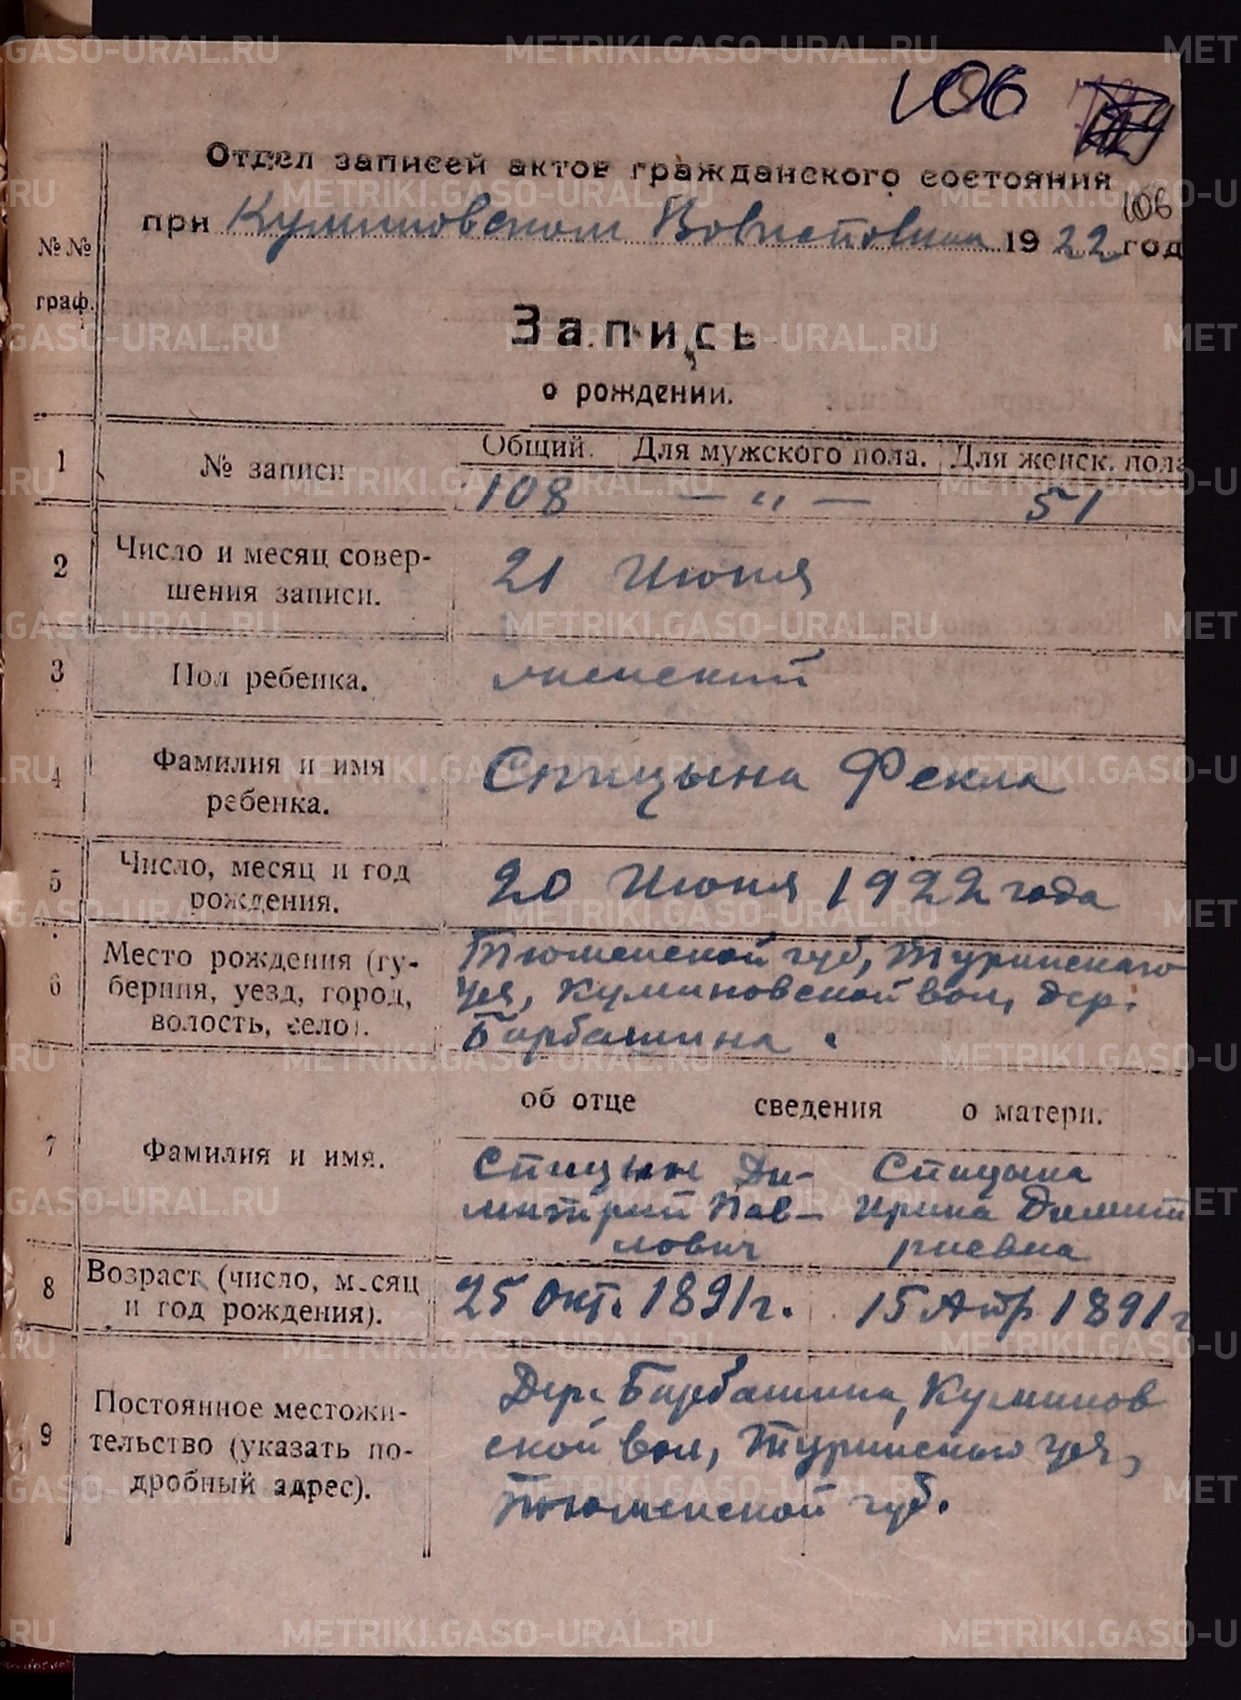 106
Отдел записей актов гражданского состояния
106
при Куминовском Волисполкоме 1922 год
№№ граф.
Запись
о рождении.
1 № записи Общий. Для мужского пола. Для женск. пола
108 — „ — 51
2 Число и месяц совер-
шения записи.
21 Июня
3 Пол ребенка. женский
4 Фамилия и имя
ребенка.
Спицына Фекла
5 Число, месяц и год
рождения.
20 Июня 1922 года
6 Место рождения (гу-
берния, уезд, город,
волость, село).
Тюменской губ, Туринскаго
уез, Куминовской вол, дер.
Барбашина.
об отце сведения о матери.
7 Фамилия и имя.
Спицын Ди-
митрий Пав-
лович
Спицына
Ирина Димит
риевна
8 Возраст (число, месяц
и год рождения).
25 Окт. 1891 г. 15 Апр 1891 г
9 Постоянное местожи-
тельство (указать по-
дробный адрес).
Дер. Барбашина, Куминов
ской вол, Туринского уез,
Тюменской губ.
METRIKI.GASO-URAL.RU